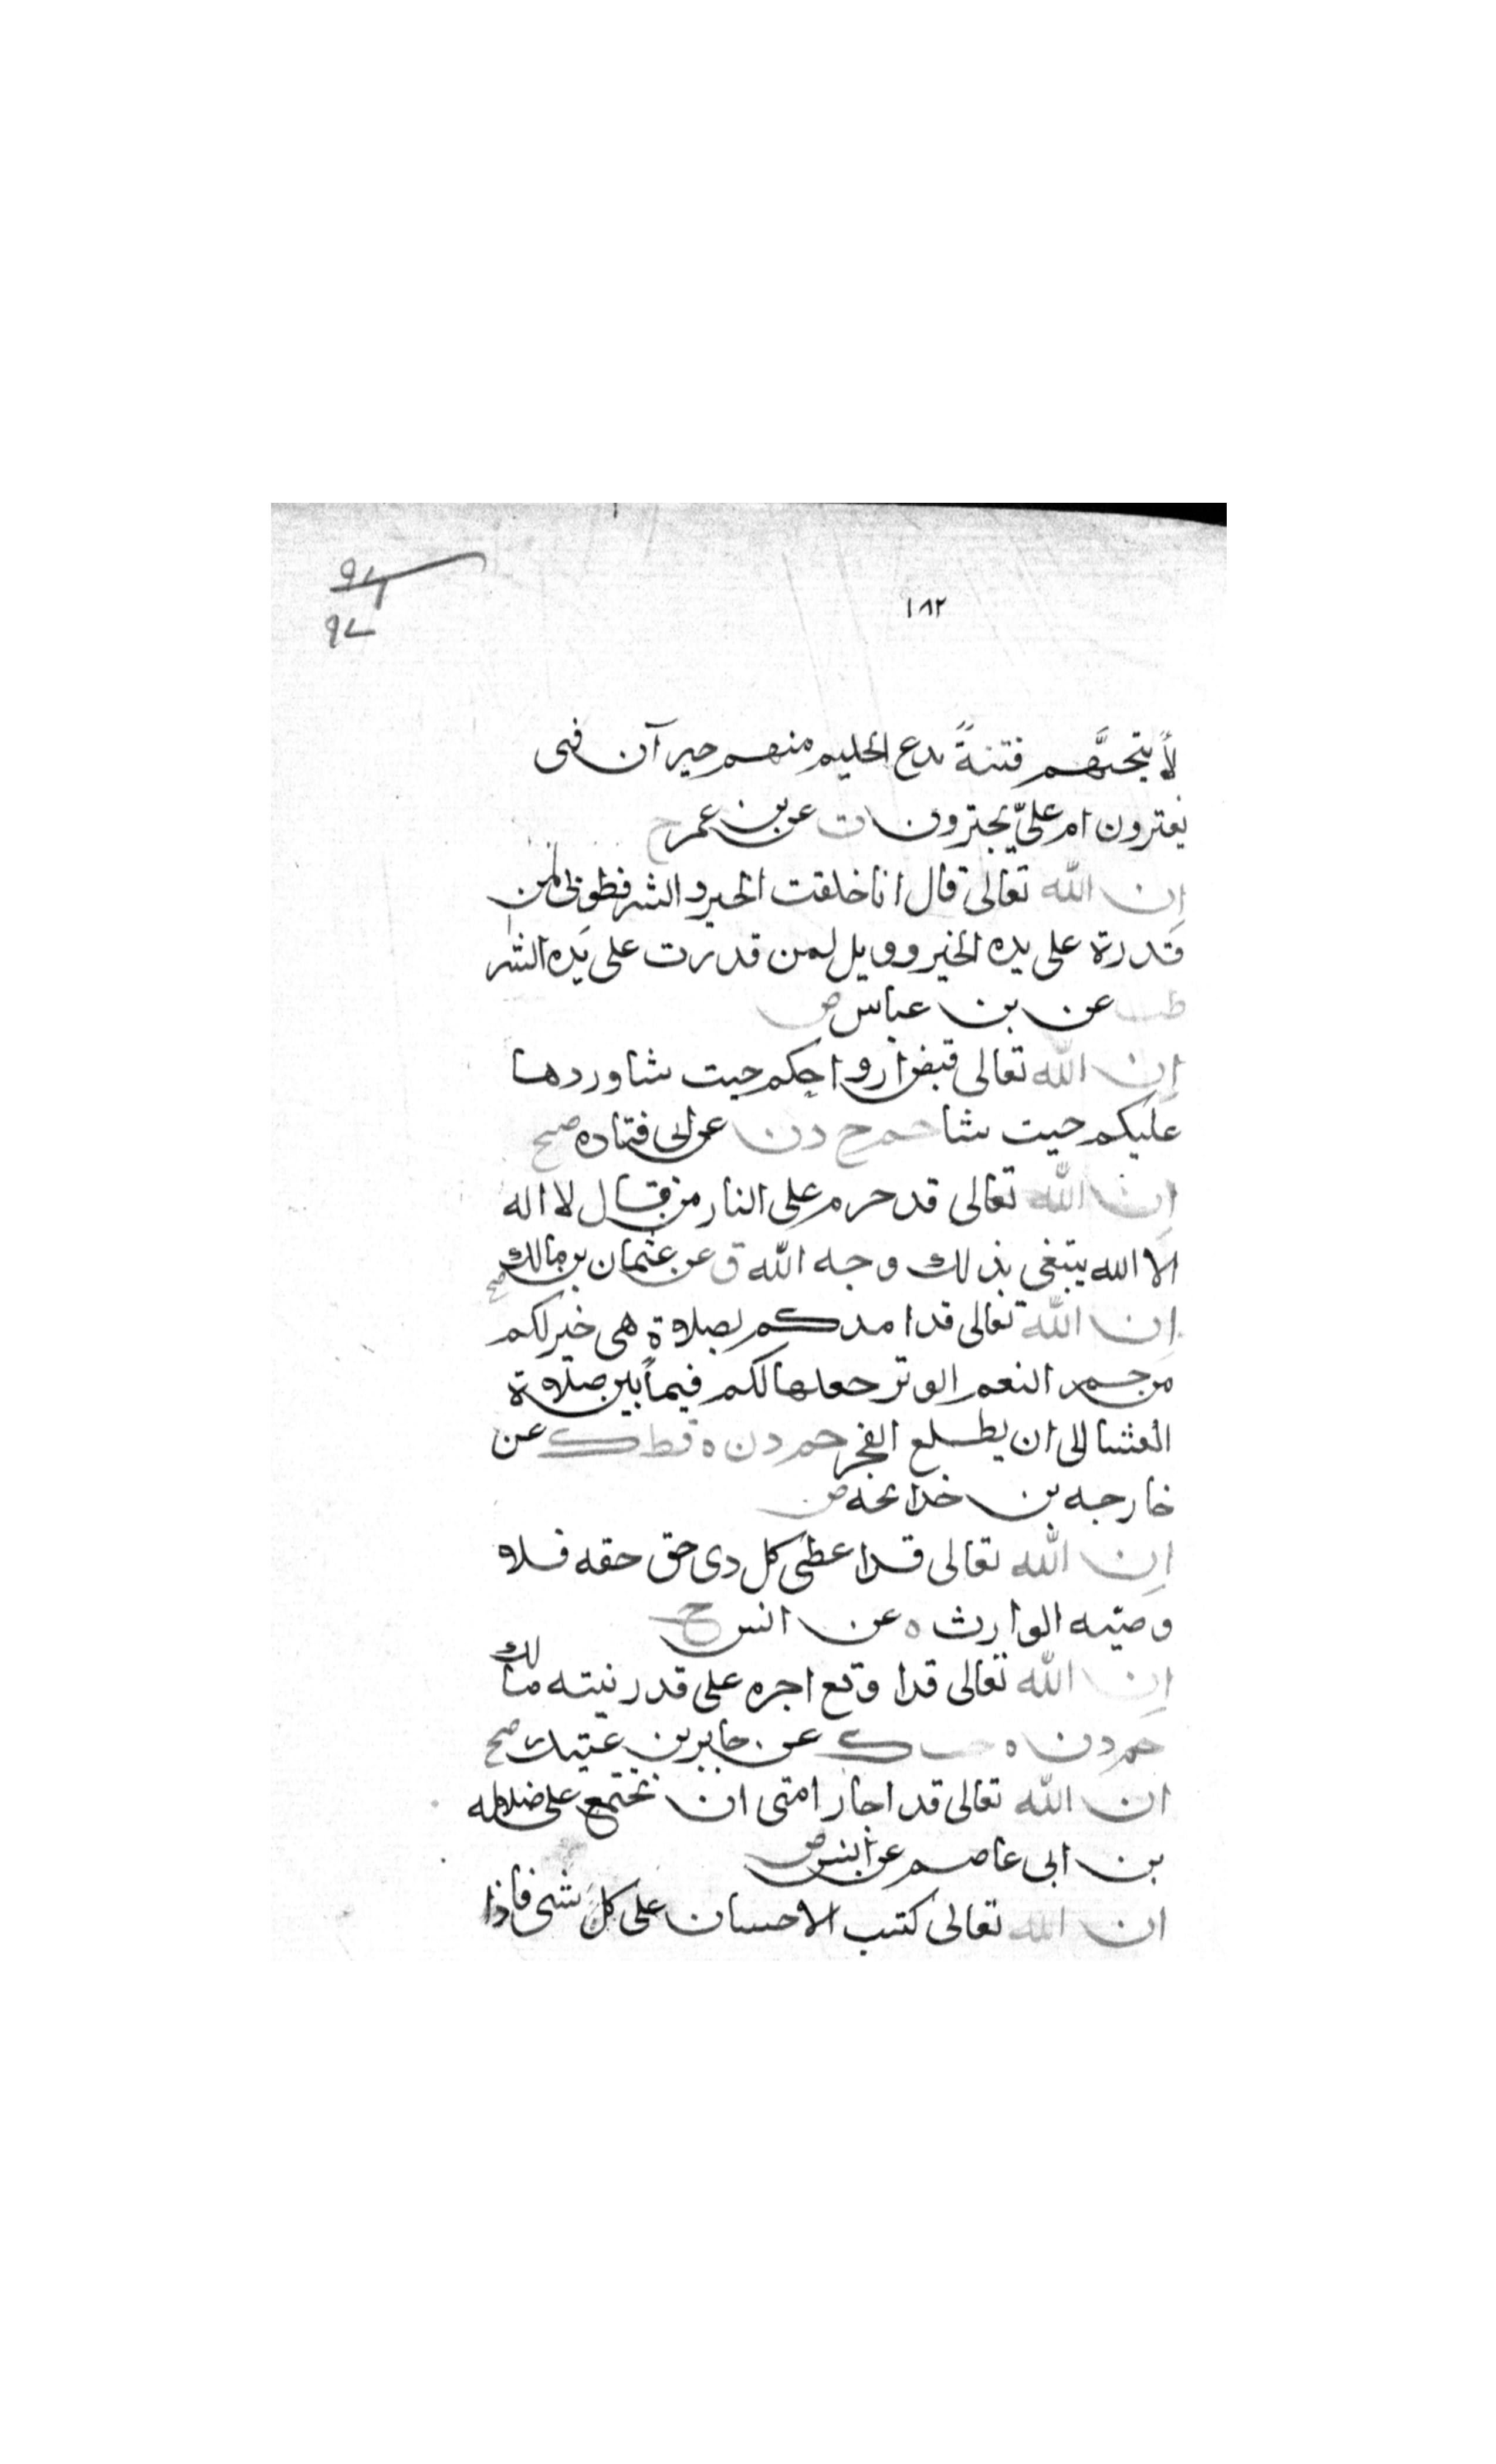 ١٨٢
٩٦
٩٧
لأتيحنَّهم فتنةً تدع الحليم منهم حيرآن فبى
يغترون ام علىّ يجترون ت عن بن عمر ح
إن الله تعالى قال انا خلقت الخير والشر فطوبى لمن
قدرة على يده الخير وويل لمن قدرت على يده الشر
طب عن بن عباس ض
إن الله تعالى قبض ارواحكم حيت شا وردها
عليكم حيت شا حم خ د ن عن ابى قتاده صح
إن الله تعالى قد حرم على النار من قال لا اله
الا الله يبتغى بذلك وجه الله ق عن عتمان بن مالك صح
إن الله تعالى قد امدكم بصلاة هى خير لكم
من حمر النعم الوتر جعلها لكم فيما بين صلاة
العشا الى ان يطلع الفجر حم د ن ه قط ك عن
خارجه بن خذافه ض
إن الله تعالى قد اعطى كل دى حق حقه فلا
وصيه الوارث ه عن انس ح
إن الله تعالى قد اوقع اجره على قدر نيته مالك
حم د ن ه حب ك عن جابر بن عتيك صح
ان الله تعالى قد اجار امتى ان تجتمع على ضلاله
بن ابى عاصم عن انس ض
ان الله تعالى كتب الاحسان على كل شى فاذا